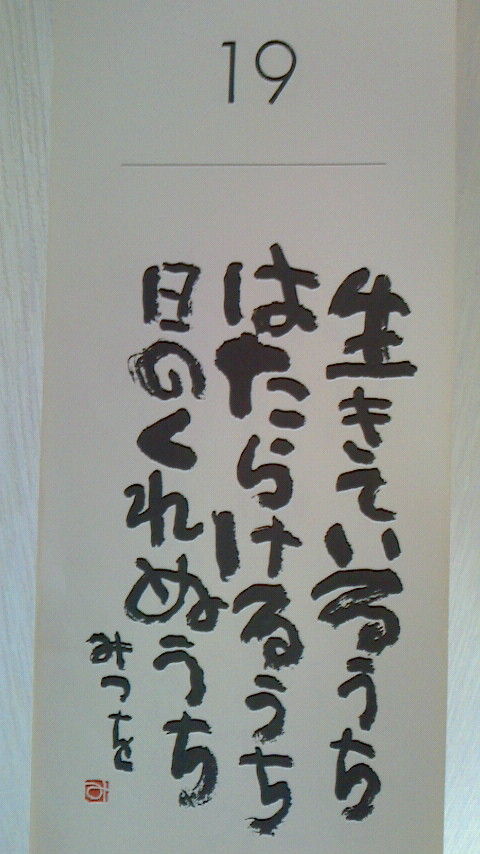 19
生きているうち
はたらけるうち
日のくれぬうち
みつを
み